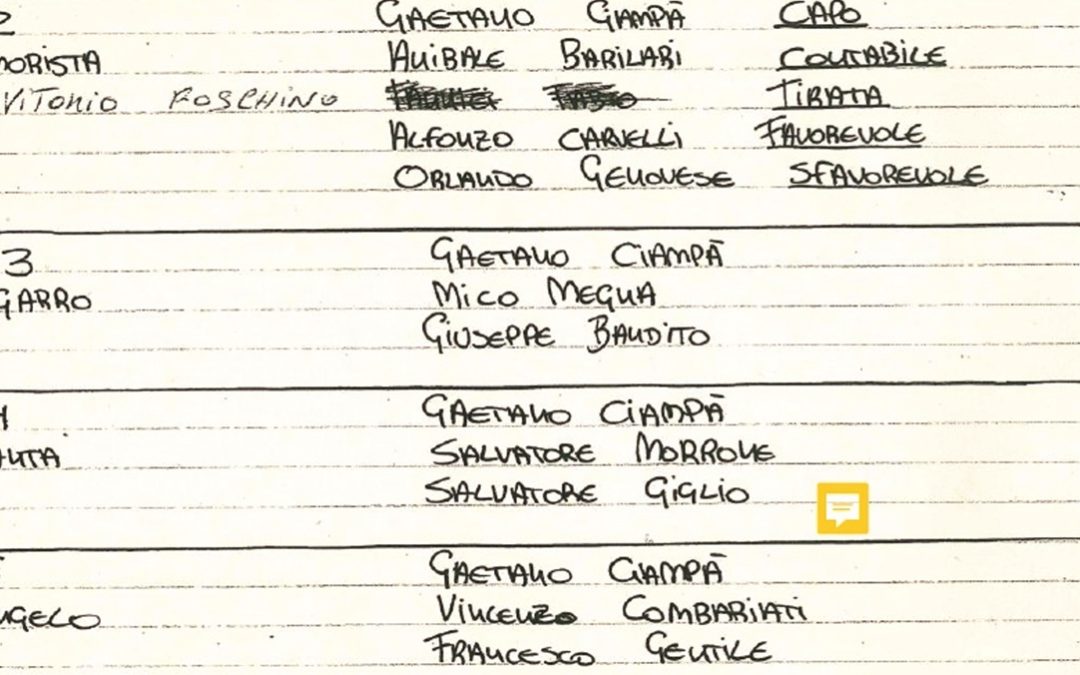 2 GAETANO CIAMPÀ CAPO
MORISTA ANIBALE BARILARI CONTABILE
VITONIO FOSCHINO TIRATA
ALFONZO CARVELLI FAVOREVOLE
ORLANDO GENOVESE SFAVOREVOLE
3 GAETANO CIAMPÀ
GARRO MICO MEGNA
GIUSEPPE BANDITO
GAETANO CIAMPÀ
NTA SALVATORE MORRONE
SALVATORE GIGLIO
GAETANO CIAMPÀ
NGELO VINCENZO COMBARIATI
FRANCESCO GENTILE